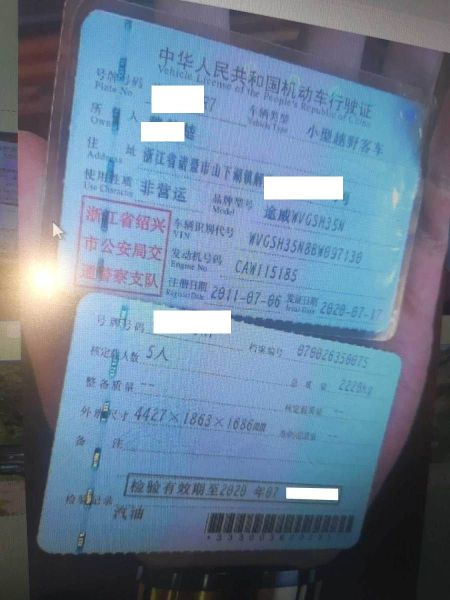 中华人民共和国机动车行驶证
Vehicle License of the People's Republic of China
号牌号码 7 车辆类型 小型越野客车
Plate No. Vehicle Type
所有人
Owner
住址 浙江省诸暨市山下湖镇 号
Address
使用性质 非营运 品牌型号 途威WVGSH35N
Use Character Model
浙江省绍兴
市公安局交
通警察支队
车辆识别代号 WVGSH35N8BW097130
VIN
发动机号码 CAW115185
Engine No.
注册日期 2011-07-06 发证日期 2020-07-17
Register Date Issue Date
号牌号码 档案编号 070026350075
核定载人数 5人 总质量 2220kg
整备质量 -- 核定载质量 --
外廓尺寸 4427×1863×1686mm 准牵引总质量 --
备注
检验有效期至2020 年07
检验记录
汽油